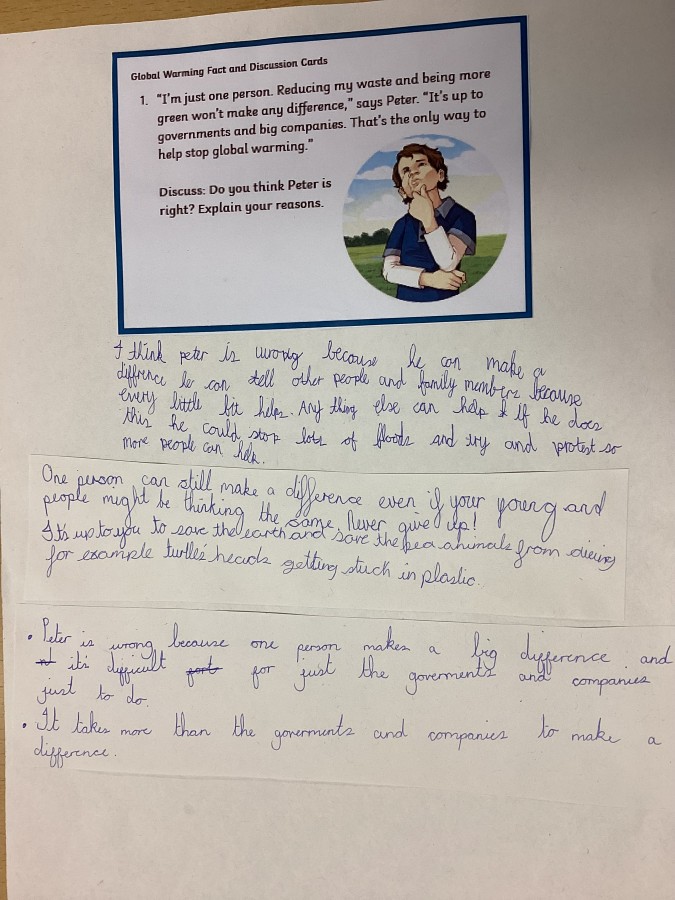 Global Warming Fact and Discussion Cards
1. "I'm just one person. Reducing my waste and being more
green won't make any difference," says Peter. "It's up to
governments and big companies. That's the only way to
help stop global warming."
Discuss: Do you think Peter is
right? Explain your reasons.
I think peter is wrong because he can make a
diffrence he can tell other people and family members because
every little bit helps. Any thing else can help if he does
this he could stop lots of floods and try and protest so
more people can help.
One person can still make a difference even if your young and
people might be thinking the same. Never give up!
It's up to you to save the earth and save the sea animals from dieing
for example turtles' heads getting stuck in plastic.
• Peter is wrong because one person makes a big difference and
it's difficult for just the goverments and companies
just to do.
• It takes more than the goverments and companies to make a
difference.